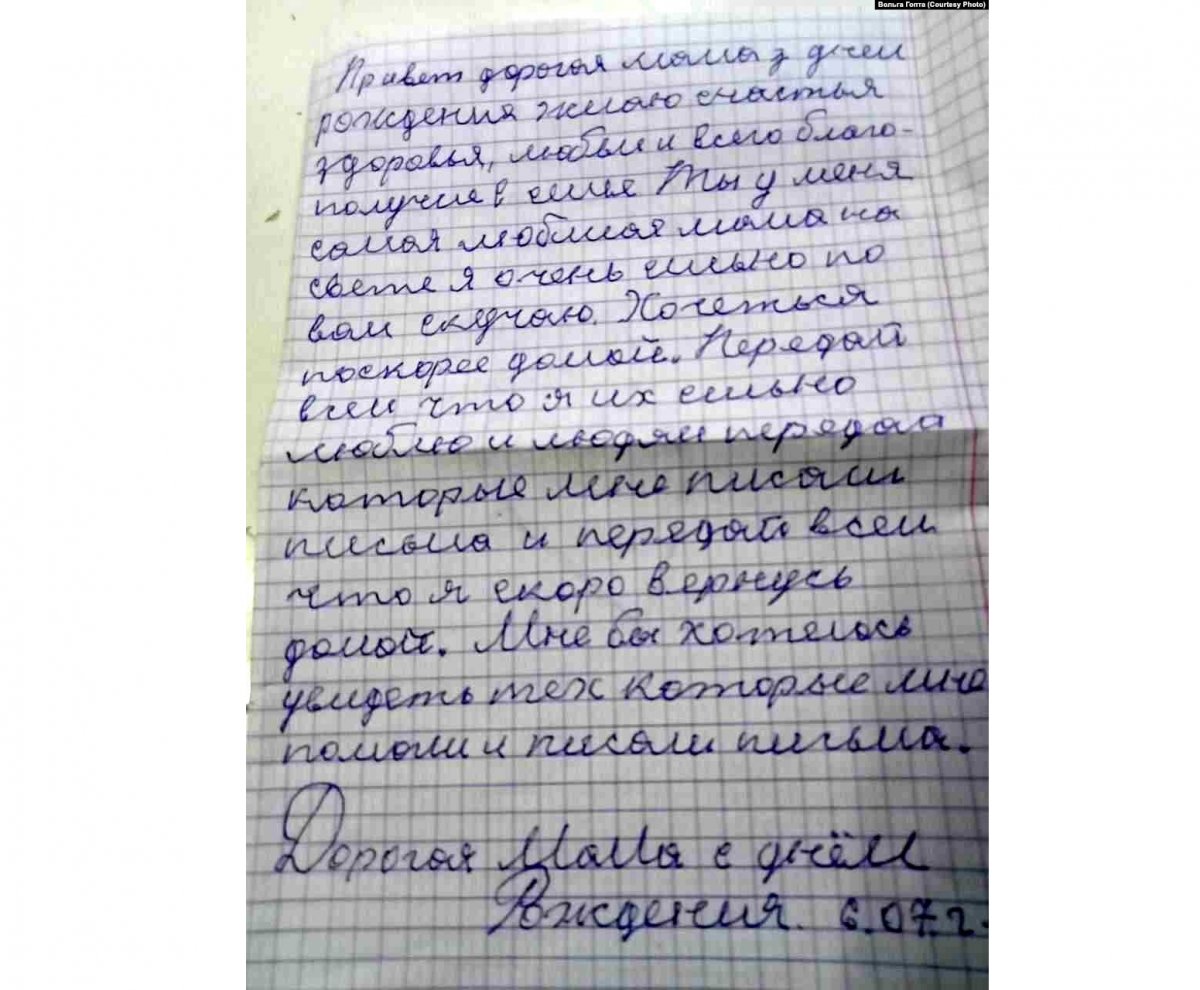 Вольга Гопта (Courtesy Photo)
Привет дорогая мама з днем
рождения желаю счастья
здоровья, любви и всего благо-
получие в семье Ты у меня
самая любимая мама на
свете я очень сильно по
вам скучаю. Хочеться
поскорее домой. Передай
всем что я их сильно
люблю и людям передай
которые мне писали
письма и передай всем
что я скоро вернусь
домой. Мне бы хотелось
увидеть тех которые мне
помогли и писали письма.
Дорогая Мама с днём
Рождения. 6.07.г.